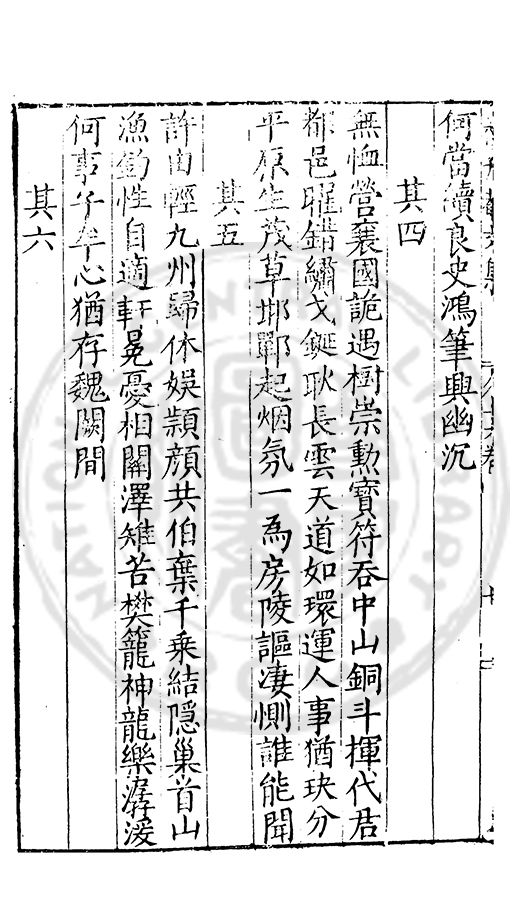 何當續良史鴻筆興幽沉
其四
無恤營襄國詭遇樹崇勳寶符吞中山銅斗揮代君
都邑曜錯繡戈鋋耿長雲天道如環運人事猶玦分
平原生茂草邯鄲起烟氛一為房陵謳凄惻誰能聞
其五
許由輕九州歸休娛潁顏共伯棄千乘結隱巢首山
漁釣性自適軒冕憂相關澤雉苦樊籠神龍樂潺湲
何事子牟心猶存魏闕間
其六